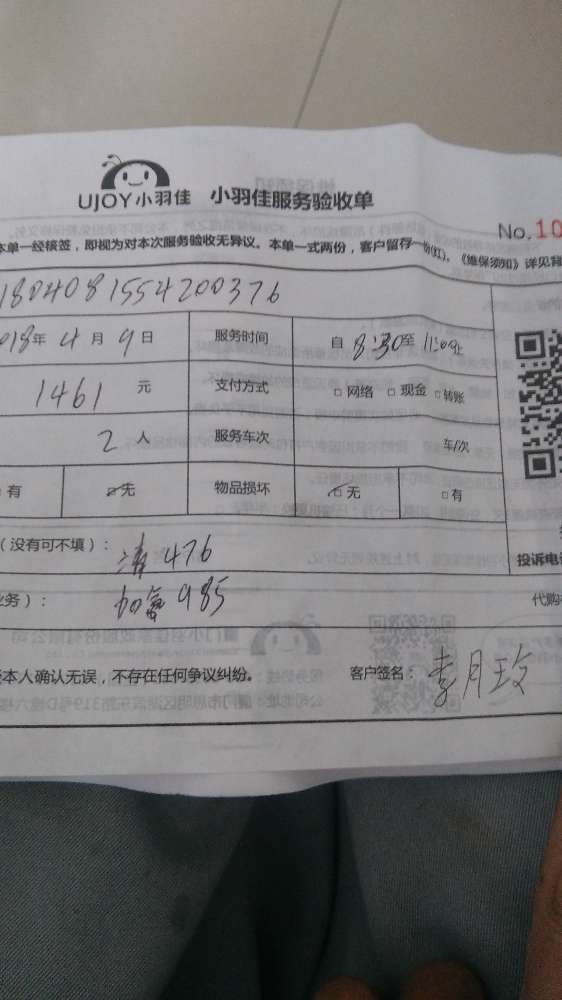 UJOY小羽佳 小羽佳服务验收单
No.10
本单一经核签，即视为对本次服务验收无异议。本单一式两份，客户留存一份(红)。《维保须知》详见背
1804081554200376
018年 4月 9日 服务时间 自 8:30至 11:00止
1461 元 支付方式 □网络 □现金 □转账
2 人 服务车次 车/次
□有 ☑无 物品损坏 ☑无 □有
（没有可不填）： 清476
投诉电
业务）： 加氟 985
代购
本人确认无误，不存在任何争议纠纷。 客户签名： 李月玫